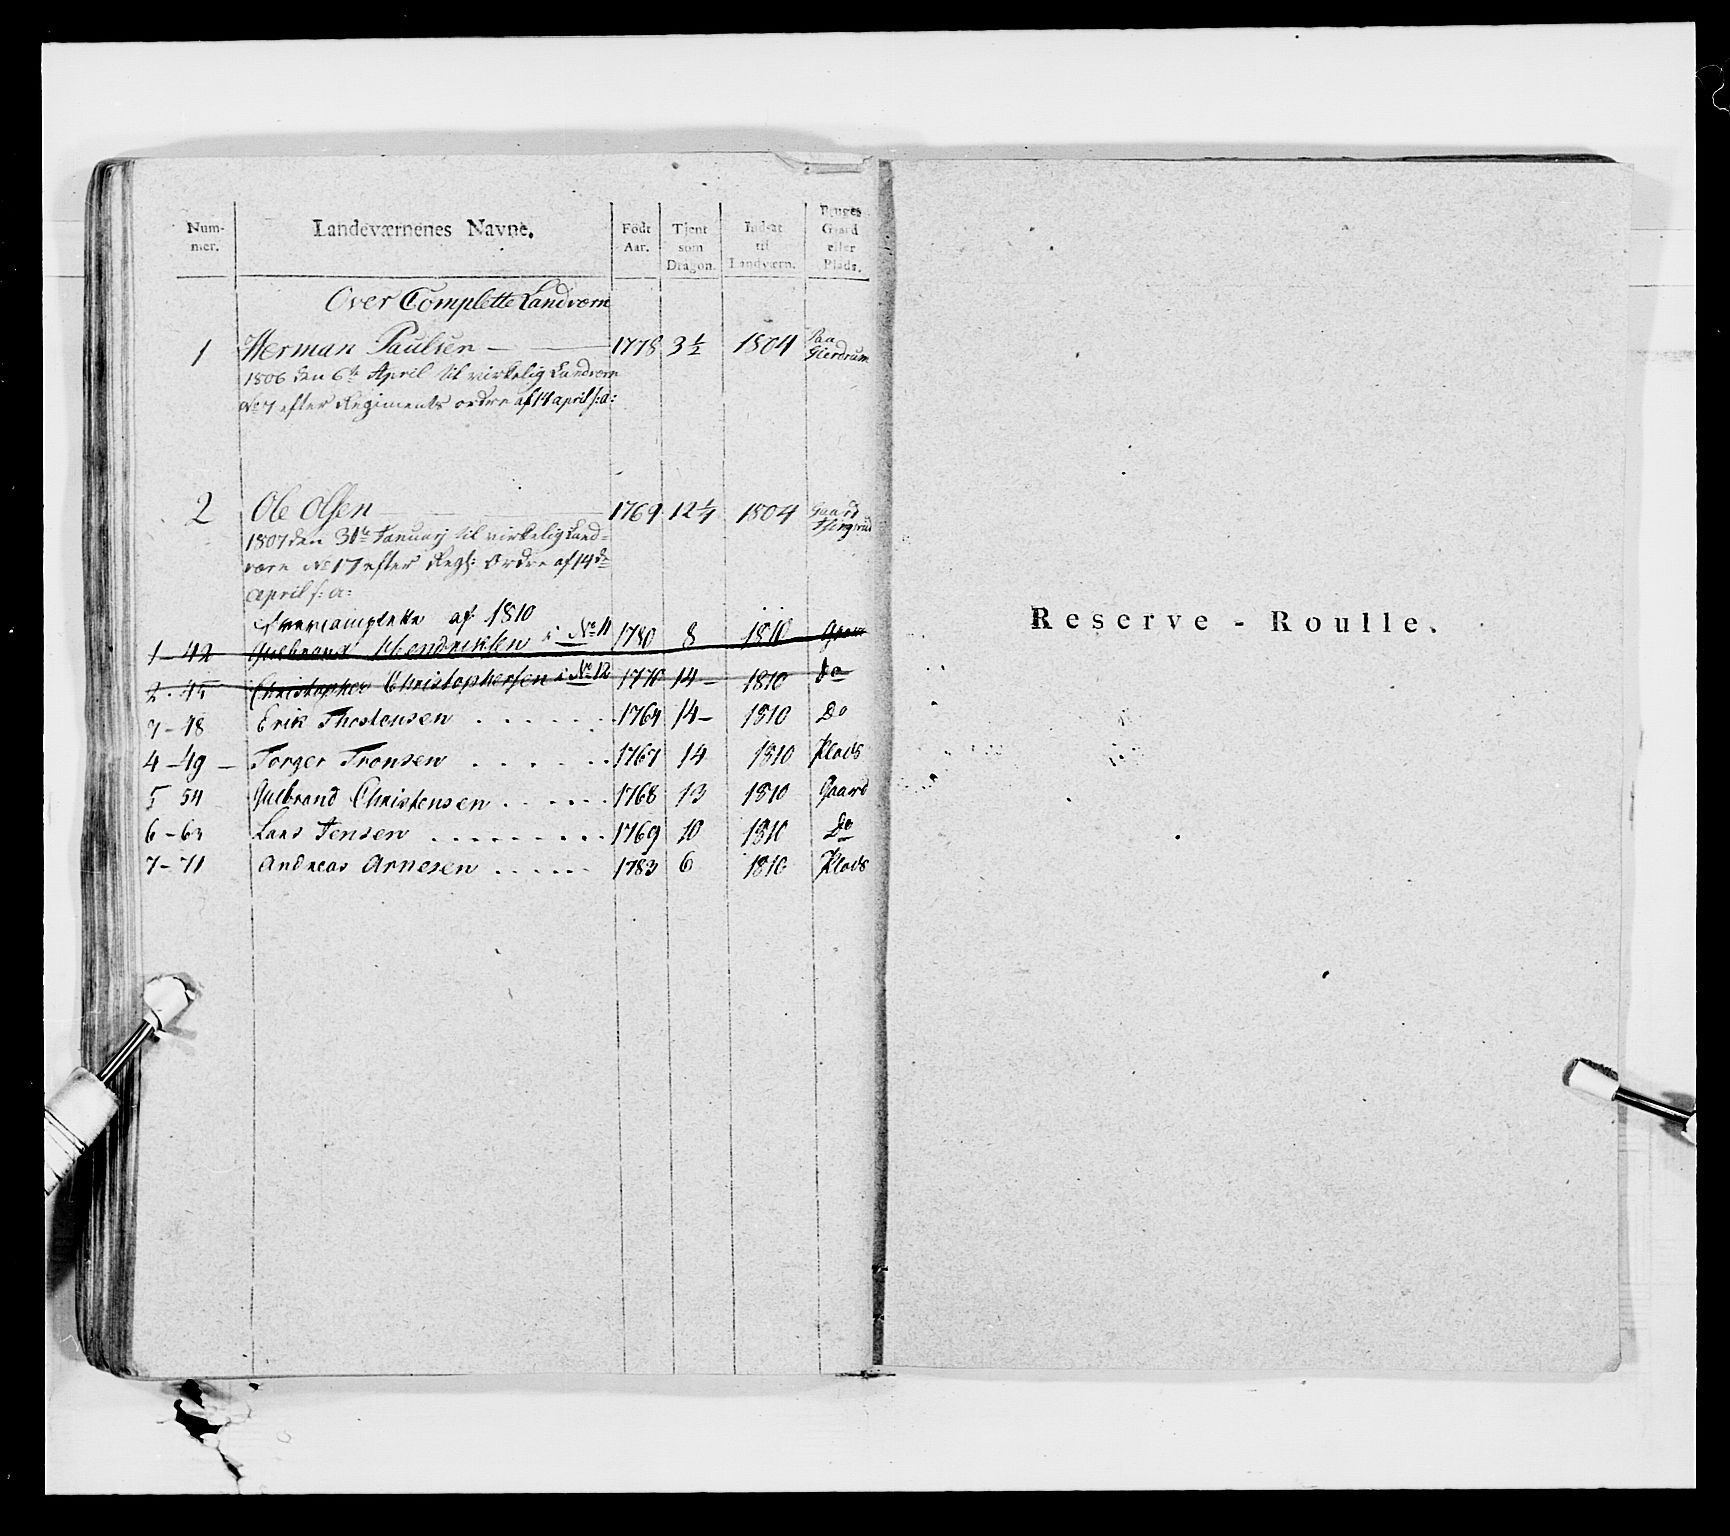 Num-mer. Landeværnenes Navne. Födt Aar. Tjent som Dragon. Indsat til Landværn. Bruges Gaard eller Plads.
Over Complette Landværn
1 Herman Paulsen — 1778 3½ 1804 Paa Gierdrum
1806 den 6te April til virkelig Landværn
No 7 efter Regiments ordre af 14 april s: a:
2 Ole Olsen 1769 12¼ 1804 Gaard
1807 den 31te Januarj til virkelig Land-
værn No 17 efter Regts: Ordre af 14de
April s: a:
Overcomplette af 1810
1 - 42 Gulbrand Hendriksen i No 11 1780 8 1810 Gaard
2 - 45 Christopher Christophersen i No 12 1770 14 - 1810 do
48 Erik Thostensen 1764 14 - 1810 Do
4 - 49 - Torger Tronsen 1767 14 1810 Plads
5 54 Gulbrand Christensen 1768 13 1810 Gaard
6 - 63 Lars Jensen 1769 10 1810 Do
7 - 71 Andreas Arnesen 1783 6 1810 Plads
Reserve - Roulle.